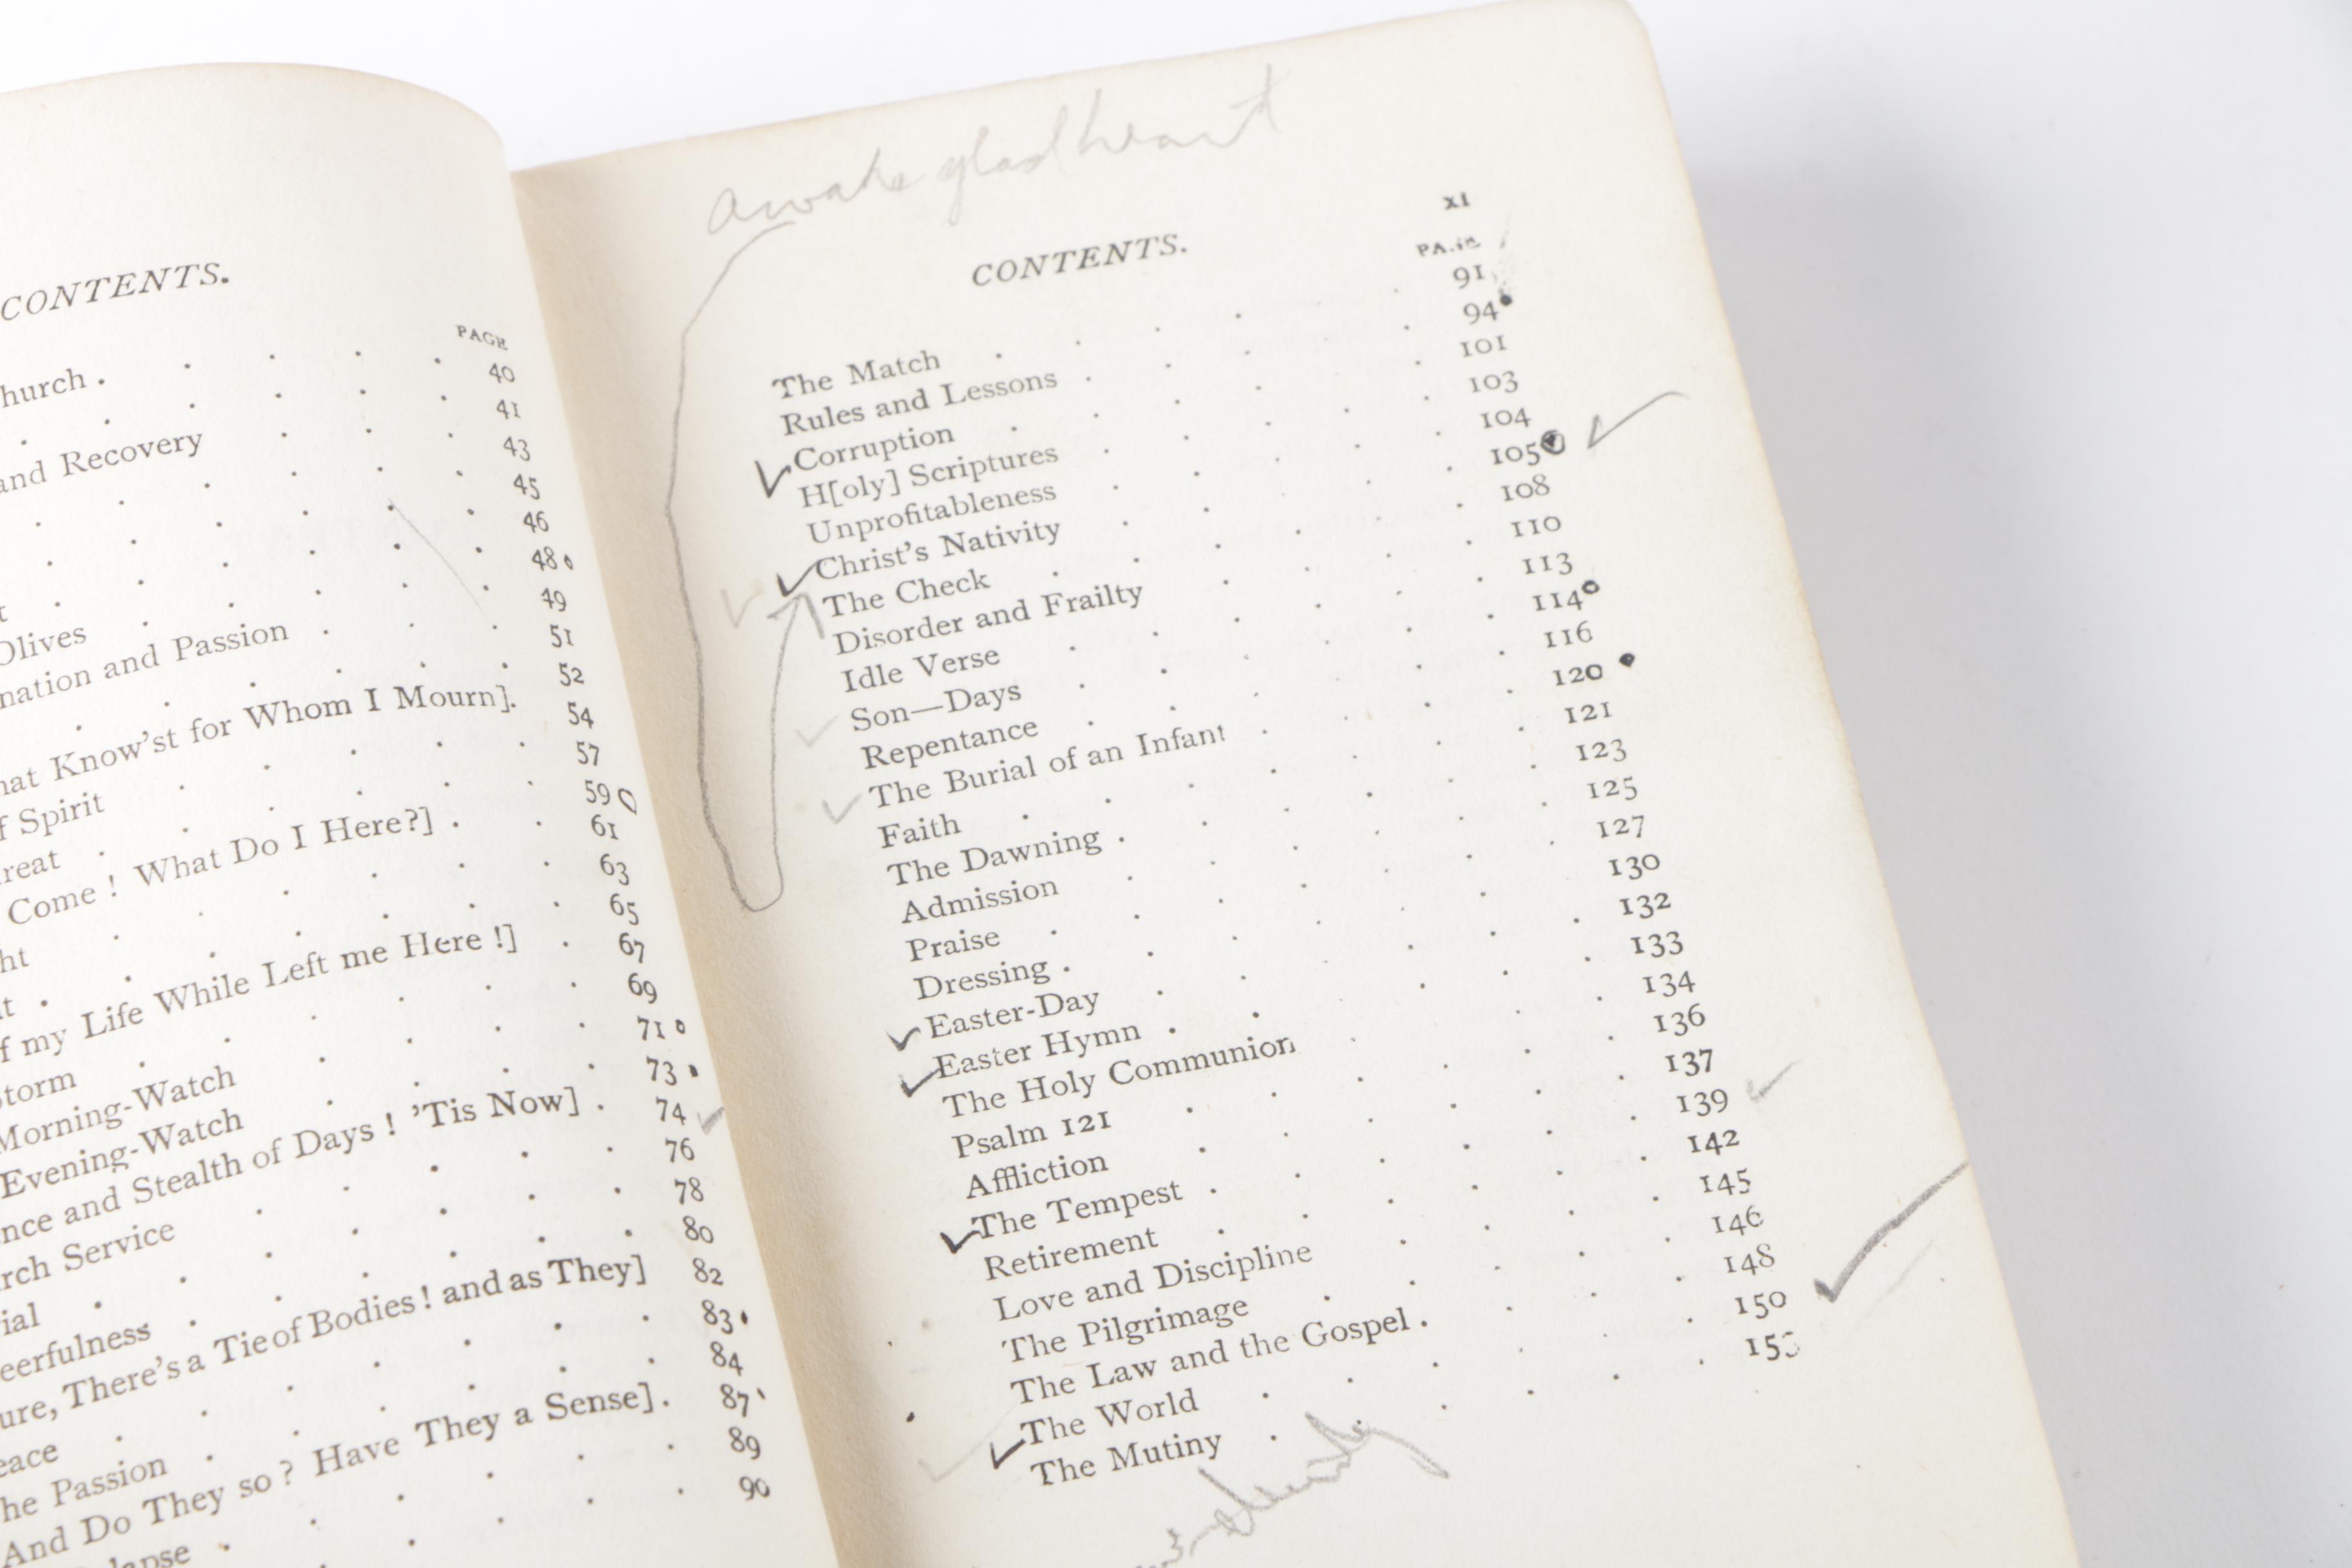 CONTENTS.
PAGE
hurch . 40
41
and Recovery 43
45
46
t 48
Olives 49
nation and Passion 51
52
hat Know'st for Whom I Mourn]. 54
f Spirit 57
reat 59
Come ! What Do I Here?] . 61
ht 63
t . 65
f my Life While Left me Here !] . 67
torm 69
Morning-Watch 71
Evening-Watch 73
nce and Stealth of Days ! 'Tis Now] . 74
rch Service 76
ial 78
eerfulness 80
ure, There's a Tie of Bodies ! and as They] 82
eace 83
he Passion 84
And Do They so ? Have They a Sense]. 87
lapse 89
90
awake glad heart
xi
CONTENTS.
PAGE
The Match 91
Rules and Lessons 94
Corruption 101
H[oly] Scriptures 103
Unprofitableness 104
Christ's Nativity 105
The Check 108
Disorder and Frailty 110
Idle Verse 113
Son—Days 114
Repentance 116
The Burial of an Infant 120
Faith 121
The Dawning 123
Admission 125
Praise 127
Dressing 130
Easter-Day 132
Easter Hymn 133
The Holy Communion 134
Psalm 121 136
Affliction 137
The Tempest 139
Retirement 142
Love and Discipline 145
The Pilgrimage 146
The Law and the Gospel 148
The World 150
The Mutiny 153